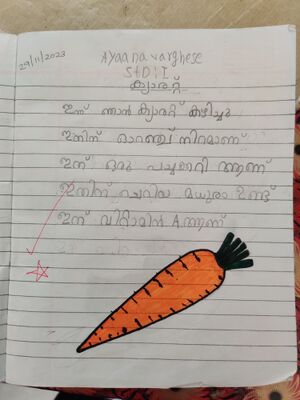 29/11/2023
Ayaana varghese
STD: I
ക്യാരറ്റ്
ഇന്ന് ഞാൻ ക്യാരറ്റ് കഴിച്ചു
ഇതിന് ഓറഞ്ച് നിറമാണ്
ഇത് ഒരു പച്ചക്കറി ആണ്
ഇതിന് ചെറിയ മധുരം ഉണ്ട്
ഇത് വിറ്റാമിൻ A ആണ്